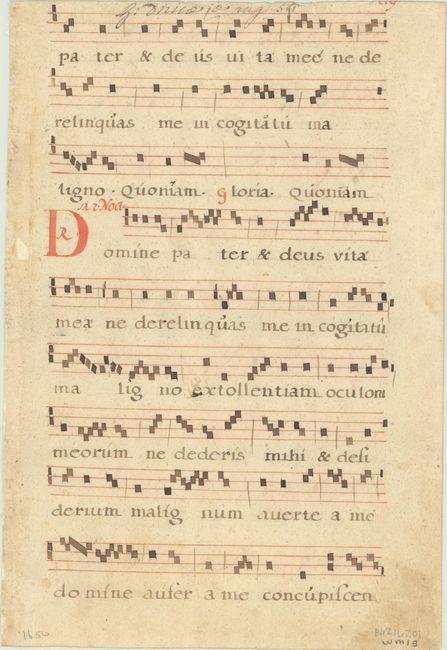 pa ter & de us ui ta meę ne de
relinquas me in cogitatū ma
ligno · Quoniam · gloria · Quoniam
R.
Domine pa ter & deus vita
mea ne derelinquas me in cogitatū
ma lig no extollentiam oculom
meorum ne dederis mihi & desi
derium malig num auerte a me
do mine aufer a me concupiscen
1650